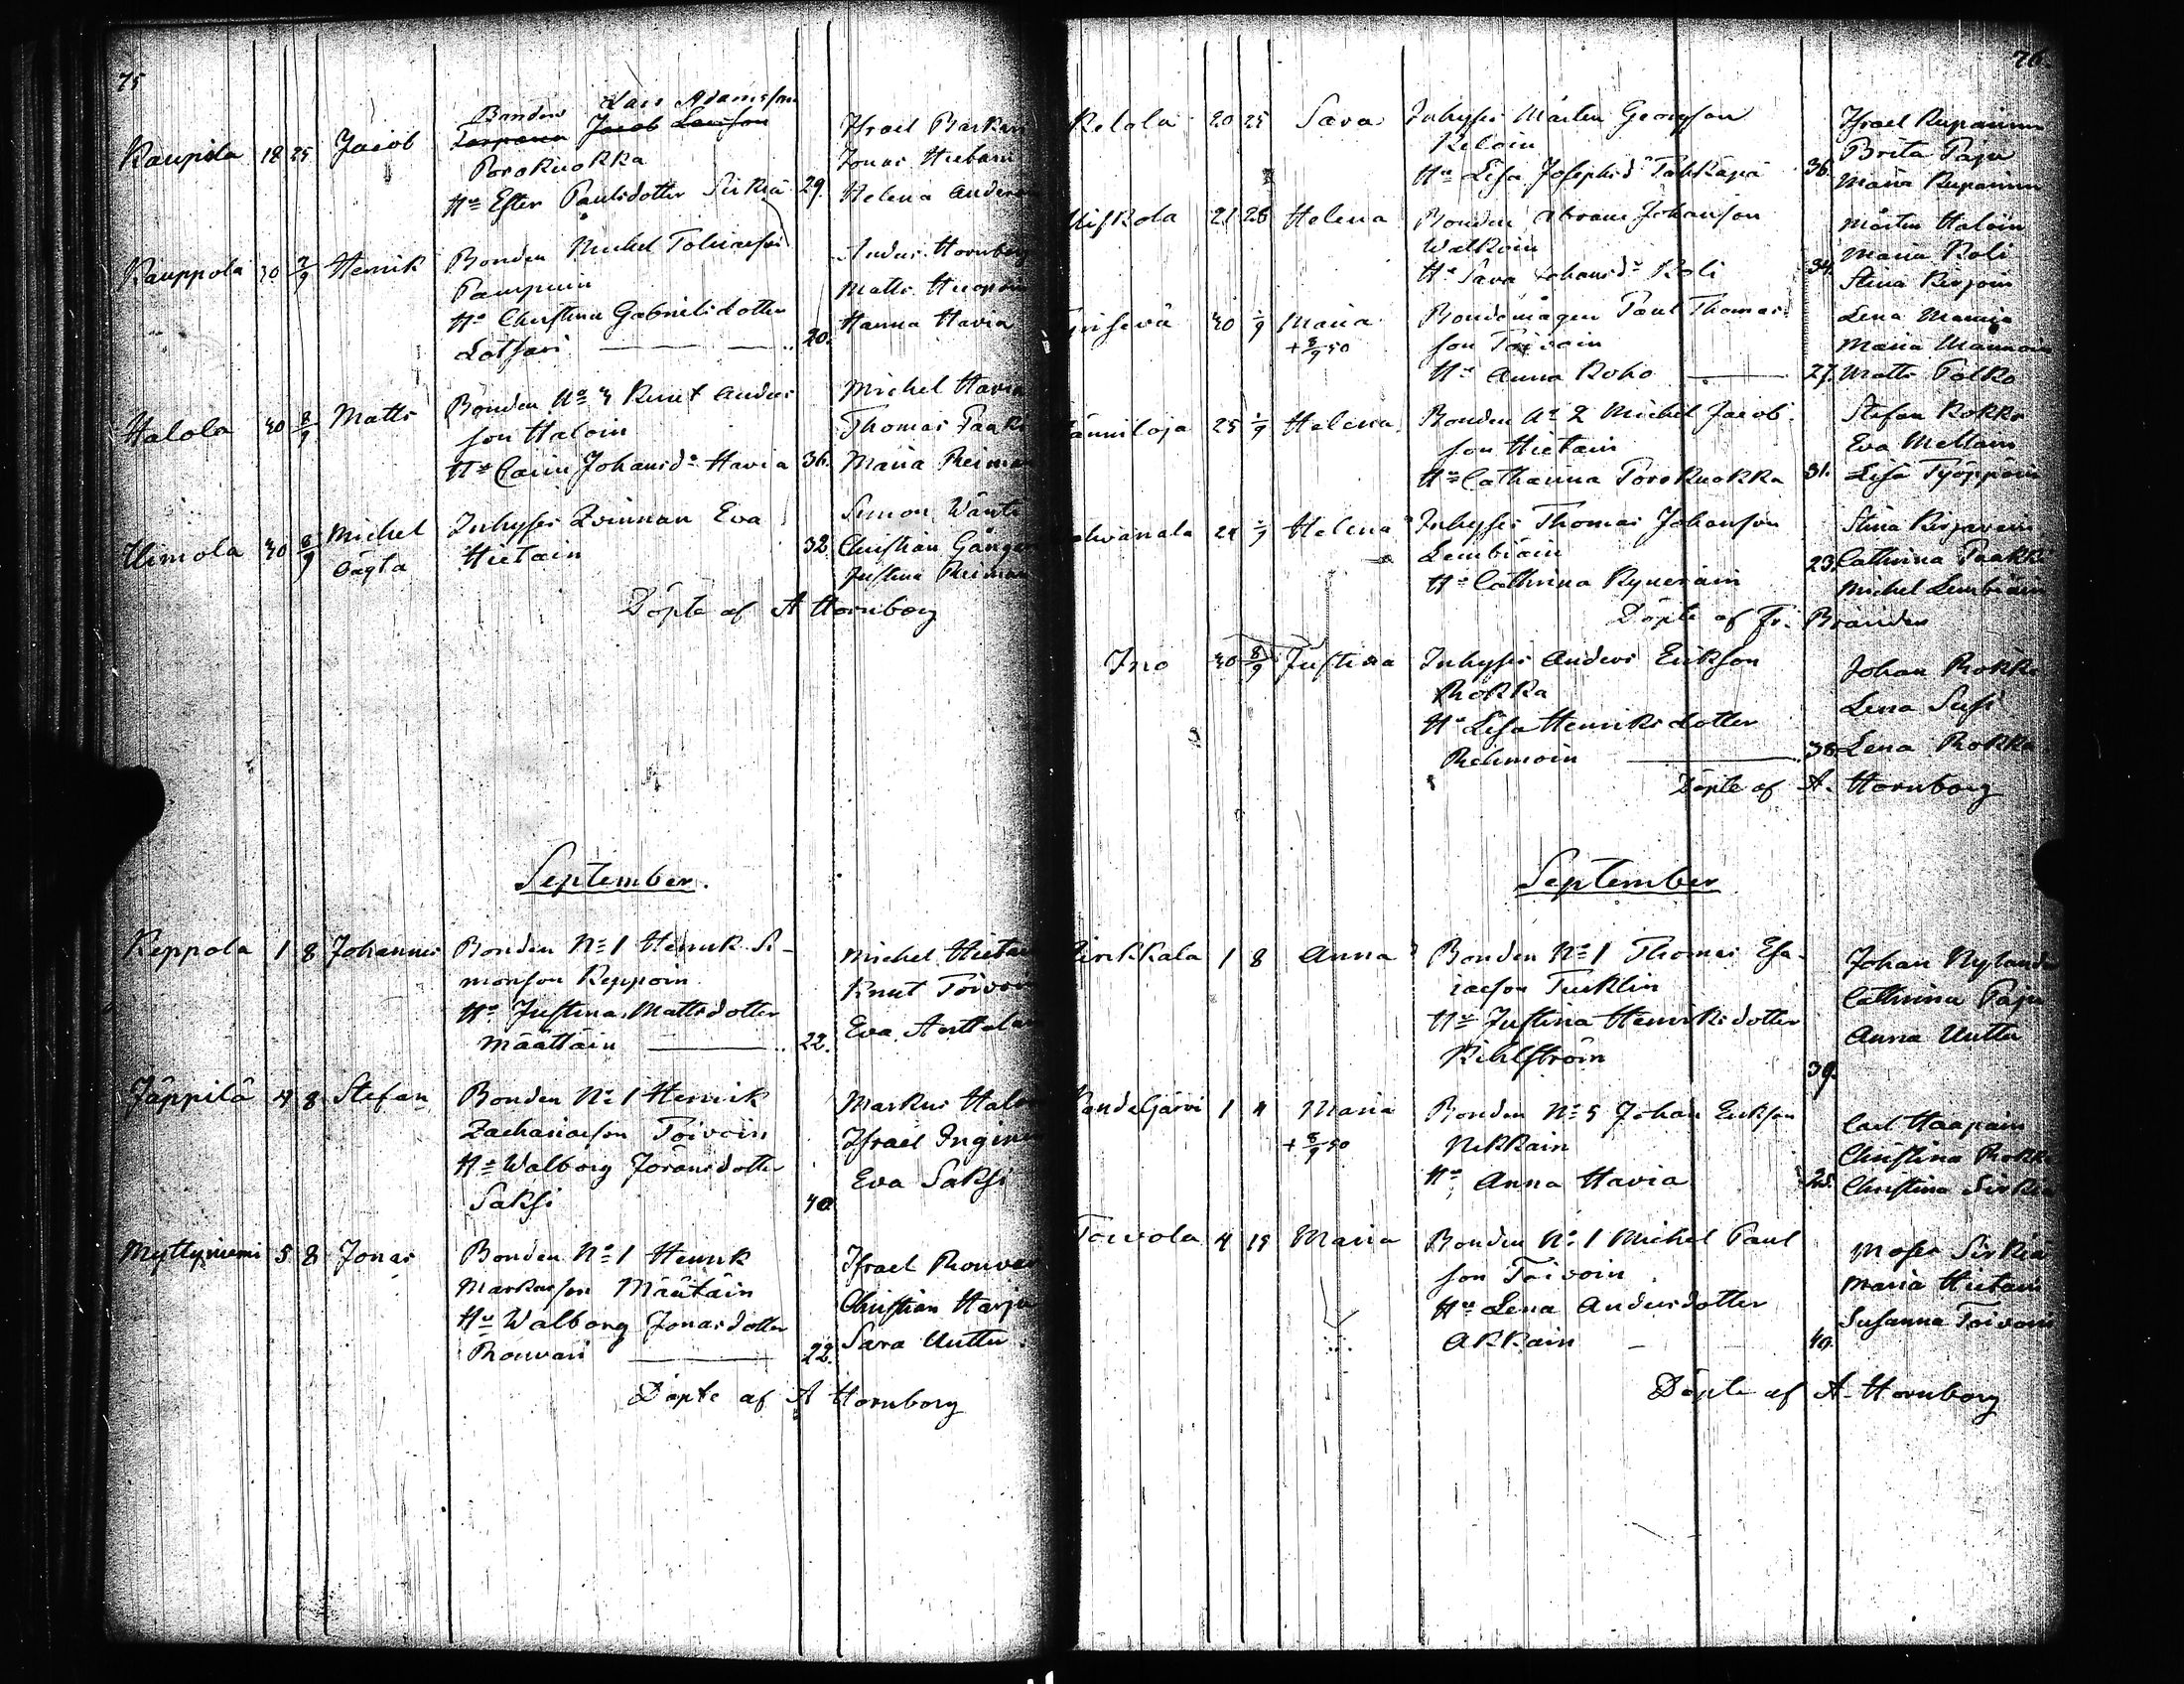 75
Bonden Lars Adamsson
Kaupila 18 25 Jacob Jacob Larsson
Porokuokka
Israel
Jonas Hietain
Hu Ester Paulsdotter Sirkiä 29. Helena Anders
Kauppola 30 7/9 Henrik Bonden Michel Tobiaeson
Pamppuin
Hu Christina Gabrielsdotter
Lotjari 20.
Anders Hornborg
Matts Huopoin
Hanna Havia
Halola 30 8/9 Matts Bonden No 4 Knut Anders
son Haloin
Hu Carin Johansdr Havia 36.
Michel Havia
Thomas Paaki
Maria Reiman
Himola 30 8/9 Michel oägta Inhyses Qvinnan Eva
Hietain 32.
Simon Wänti
Christian
Justina Reiman
Döpte af A Hornborg
September.
Reppola 1 8 Johannes Bonden No 1 Henrik Si-
monson Reppoin
Hu Justina Mattsdotter
Määttäin 22.
Michel Hietain
Knut Toivoin
Eva Anttalain
Jäppilä 4 8 Stefan Bonden No 1 Henrik
Zachariaeson Toivoin
Hu Walborg Jöransdotter
Saksi 40
Markus Haloin
Israel Inginen
Eva Saksi
Myttyniemi 5 8 Jonas Bonden No 1 Henrik
Markusson Määtäin
Hu Walborg Jonasdotter
Rouvari 22.
Israel Rouvari
Christian Harju
Sara Uuttu
Döpte af A Hornborg
76.
Kelola 20 25 Sara Inhyses Mårten Georgsson
Keloin
Hu Lisa Josephsdr Tahkäpä 36.
Israel Kuparinen
Brita Paju
Maria Kuparinen
21 26 Helena Bonden Abram Johansson
Walkoin
Hu Sara Johansdr Koli 34.
Mårten Haloin
Maria Koli
Stina Kirjoin
30 1/9 Maria Bondemågen Paul Thomas-
+ 8/9 50 son Toivoin
Hu Anna Koho 27.
Lena
Maria Mannoin
Matts Polko
25 1/9 Helena Bonden No 2 Michel Jacob-
son Hietain
Hu Catharina Porokuokka 31.
Stefan Rokka
Eva
Lisa Työppöin
29 1/9 Helena Inhyses Thomas Johansson
Lembiäin
Hu Cathrina 23.
Stina
Cathrina Paakki
Michel Lembiäin
Döpte af Fr. Brander
Ino 30 8/9 Justina Inhyses Anders Erikson
Rokka
Hu Lisa Henriksdotter
Rehmoin 38.
Johan Rokka
Lena Susi
Lena Rokka
Döpte af A. Hornborg
September
Kirkkala 1 8 Anna Bonden No 1 Thomas Esa-
iaeson Tuoklin
Hu Justina Henriksdotter
Kihlström 39.
Johan Nylander
Cathrina Paju
Anna Uuttu
Vandeljärvi 1 8 Maria Bonden No 5 Johan Erikson
+ 8/9 50 Nikkain
Hu Anna Havia 25.
Carl Haapain
Christina Rokka
Christina Sirkiä
Toivola 4 15 Maria Bonden No 1 Michel Paul
son Toivoin
Hu Lena Andersdotter
Akkain 40.
Moses Sirkiä
Maria Hietain
Susanna Toivoin
Döpte af A. Hornborg